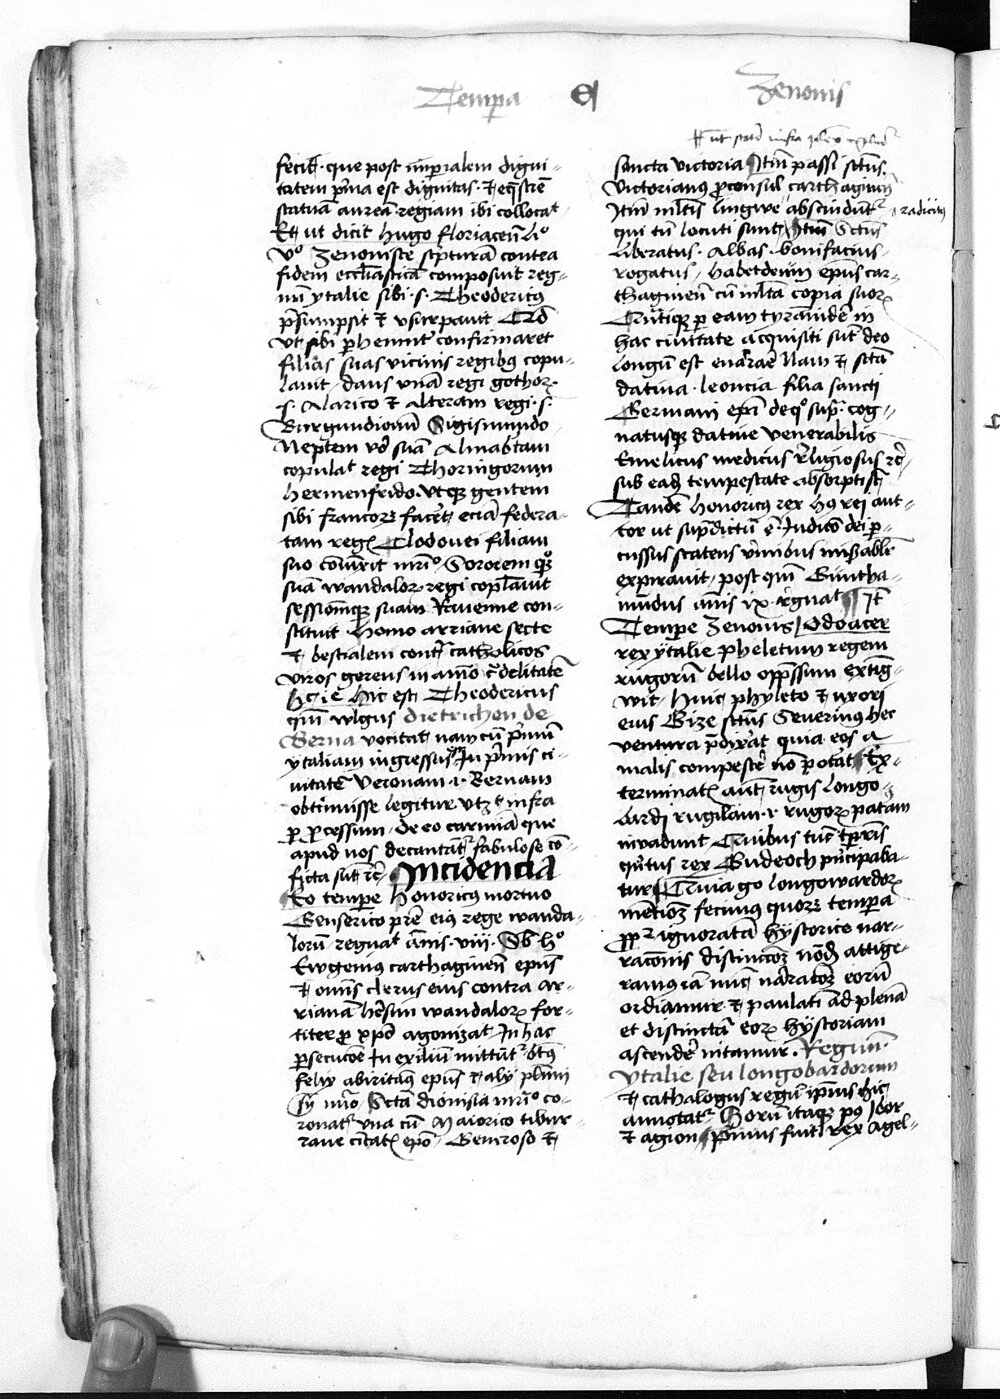 Tempa Zenonis
fecit. que post imperialem digni-
tatem prima est dignitas. et equestrē
statuā aureā regiam ibi collocat
Et ut dicit Hugo floriacen̄ li°
v° Zenon iste scripturā contra
fidem ecclīasticā composuit reg-
num ytalie sibi .s. Theodericus
p̄sumpsit et vsurpauit
Vt sibi confirmaret
filias suas vicinis regibus copu-
lauit, dans vnā regi gothor.
.s. Alarico et alteram regi .s.
Burgundionū Sigismundo
Neptem vō suā Almabtam
copulat regi Thoringorum
hermenfrido. vtque gentem
sibi francorum facēt eciā federa-
tam regis Clodouei filiam
suo mr̄io Sororem quoque
suā wandalor regi coplauit
sessionemque suam Rauenne con-
stituit homo arriane secte
et bestialem contra catholicos
viros gerens in animo crudelitatē
Hic est Theodericus
quem wlgus dietrichen de
Berna vocitat nam cū primū
ytaliam ingressus In primis ci-
uitatē Veronam .i. Bernam
obtinuisse legitur vtz infra
per processum. de eo carmina que
apud nos decantant fabulose cō-
ficta sūt rc̄. Incidencia
Eo tempore Honoricus mortuo
Genserico patre eius rege wanda-
lorū regnat annis .viii. Sub h°
Ewgenius carthaginen̄ epūs
et omnis clerus eius contra ar-
rianā hēsim wandalor for-
titer pro xpō agonizat. In hac
persecucōe In exiliū mittūt
felix abiritanus epūs et alij
Scta dionisia mr̄io co-
ronat vna cū Maiorico
epō. Generoso et
ut infra
sancta victoria Itm̄ passi sunt.
Victorianus proconsul carthaginen̄
Itm̄ mltis lingwe abscindūt radicitus
qui tn̄ locuti sunt, Itm̄ Sctus
Liberatus. Abbas. bonifacius.
rogatus. habetdeum epūs car-
thaginen̄ cū mlta copia suor
per eam tyrannidē in
hac ciuitate acquisiti sūt deo
longū est enarrare Nam et scta
datiua. leoncia filia sancti
Germani epī de quo supra. cog-
natusque datiue venerabilis
Emelicus medicus religiosus rc̄.
sub eadem tempestate absorpti sūt
Tandē honoricus rex huius rei auc-
tor ut supradictū ē. Iudicio dei per-
cussus scatens vermibus mis̄abilr
expirauit, post quem Guntha-
mūdus annis ix regnat It
Tempore Zenonis Odoacer
rex ytalie pheletum regem
rugorū bello oppressum exting-
wit. huic phyleto et uxori
eius Gize sctūs Seuerinus hec
ventura p̄dixat quia eos a
malis compescere nō potat Ex-
terminatis autem rugis longo-
bardi rugilam .i. rugor patam
inuadunt Quibus tūc tp̄ris
quītus rex Gudeoch p̄ncipaba-
tur Quia go longowardor
mēcionem fecimus quorum tempora
propter ignoratā hystorice nar-
racōnis distinctionem nōdum attige-
ramus iā nūc narracionem eorū
ordiamur et paulatī ad plenā
et distinctā eor hystoriam
ascendere nitamur. Regnum
ytalie seu longobardorum
et cathalogus regū ipsius hic
annotatur Horū itaque post Ibor
et agion primus fuit rex Agel-